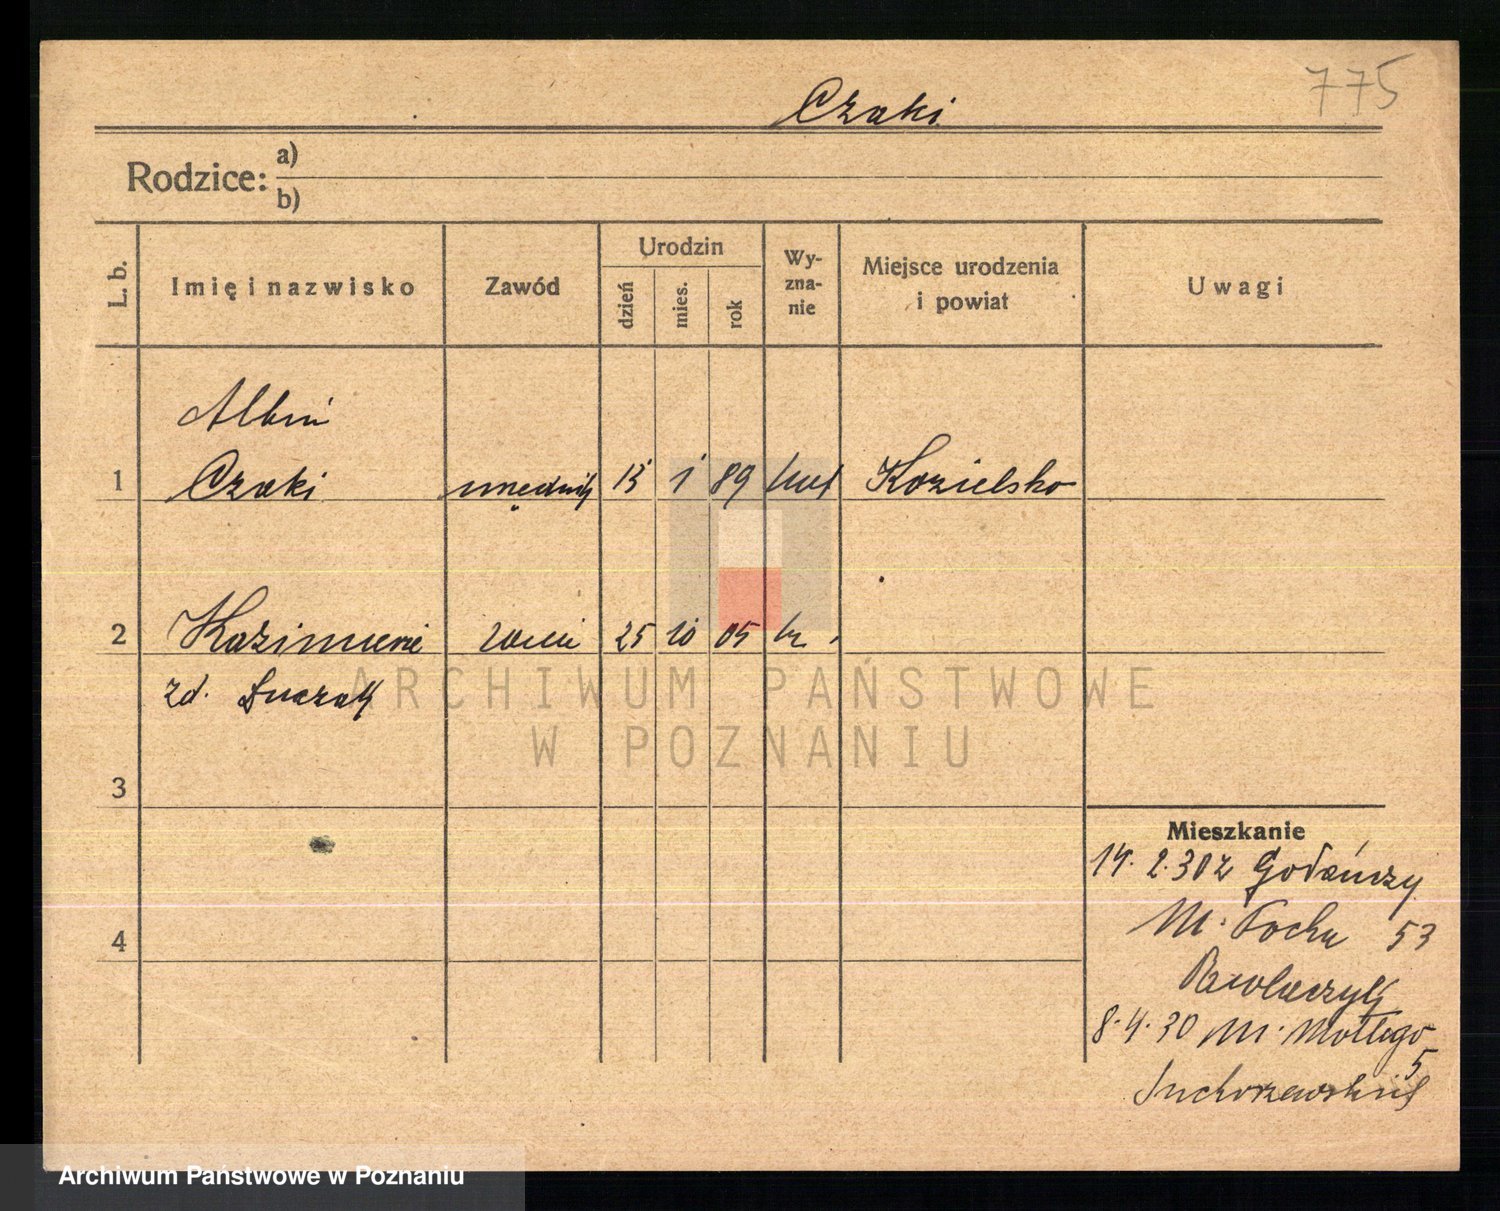 775
Czaki
Rodzice: a)
b)
L. b. Imię i nazwisko Zawód Urodzin dzień mies. rok Wyznanie Miejsce urodzenia i powiat Uwagi
Albin
1 Czaki urzędnik 13 1 89 kat Kozielsko
2 Kazimiera 25 10 05 kr.
zd.
ARCHIWUM PAŃSTWOWE
W POZNANIU
3
Mieszkanie
14. 2. 30 z
M. Focha 53
4
Pawlaczyk
8. 4. 30 M. Mottego
5
Suchorzewski
Archiwum Państwowe w Poznaniu